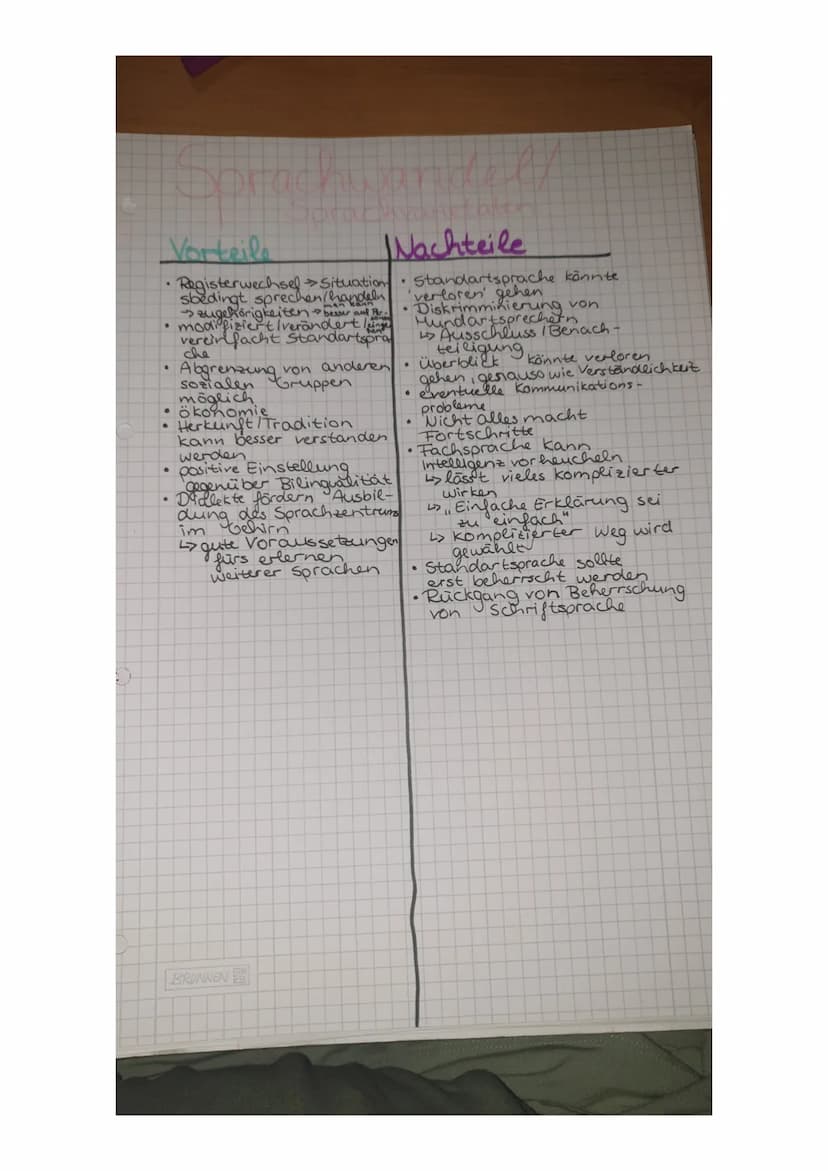 Sprachwandel/
Sprachvarietäten
Vorteile
• Registerwechsel → Situation
sbedingt sprechen/handeln
→ zugehörigkeiten → man kann besser auf
• modifiziert/verändert/
vereinfacht Standartspra
che
• Abgrenzung von anderen
sozialen Gruppen
möglich
• Ökonomie
• Herkunft/Tradition
kann besser verstanden
werden
• positive Einstellung
gegenüber Bilingualität
• Dialekte fördern Ausbil-
dung des Sprachzentrums
im Gehirn
↳ gute Voraussetzungen
fürs erlernen
weiterer Sprachen
Nachteile
• Standartsprache könnte
'verloren' gehen
• Diskrimminierung von
Mundartsprechern
↳ Ausschluss/Benach-
teiligung
• Überblick könnte verloren
gehen, genauso wie Verständlichkeit
• eventuelle Kommunikations-
probleme
• Nicht alles macht
Fortschritte
• Fachsprache kann
Intelligenz vorheucheln
↳ lässt vieles komplizierter
wirken
↳ „Einfache Erklärung sei
zu "einfach"
↳ komplizierter Weg wird
gewählt
• Standartsprache sollte
erst beherrscht werden
• Rückgang von Beherrschung
von Schriftsprache
BRUNNEN